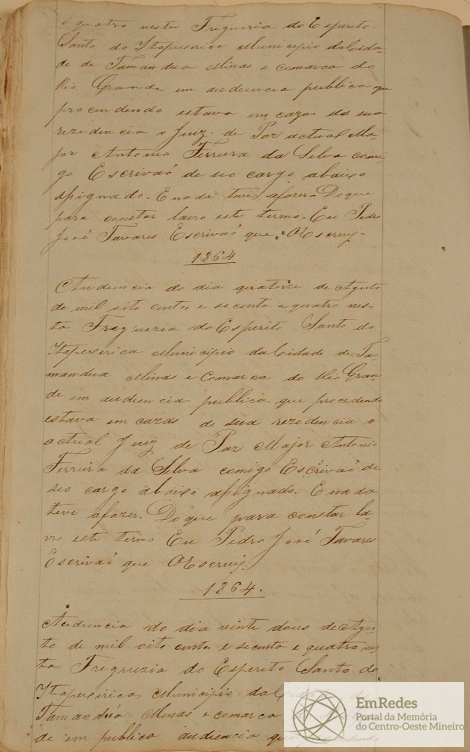 e quatro nesta Freguezia do Espirito
Santo do Itapecerica Municipio da Cida
de de Tamandua Minas e comarca do
Rio Grande em audiencia publica que
procendendo estava em cazas de sua
rezedencia o Juiz de Paz actual Ma
jor Antonio Ferrera da Silva comi
go Escrivaõ de seo cargo abaixo
apignado. E nada teve afazer Do que
para constar lavro este termo. Eu Pedro
José Tavares Escrivaõ que o Escrevy.
1864
Audiencia do dia quatorze de Agosto
de mil oito centos e secenta e quatro nes
ta Freguezia do Espirito Santo do
Itapecerica Municipio da Cidade de Ta
mandua Minas e Comarca do Rio Gran
de em audiencia publica que procedendo
estava em cazas de sua rezedencia o
actual Juiz de Paz Major Antonio
Ferreira da Silva comigo Escrivaõ de
seo cargo abaixo apignado. E nada
teve afazer. Do que para constar la
vro este termo Eu Pedro José Tavares
Escrivaõ que o Escrevy.
1864.
Audiencia do dia vinte dous de Agos
to de mil oito cento e secenta e quatro nes
ta Freguezia do Espirito Santo do
Itapecerica Municipio da
Tamandúa Minas e comarca
de em publica audiencia que
EmRedes
Portal da Memória
do Centro-Oeste Mineiro